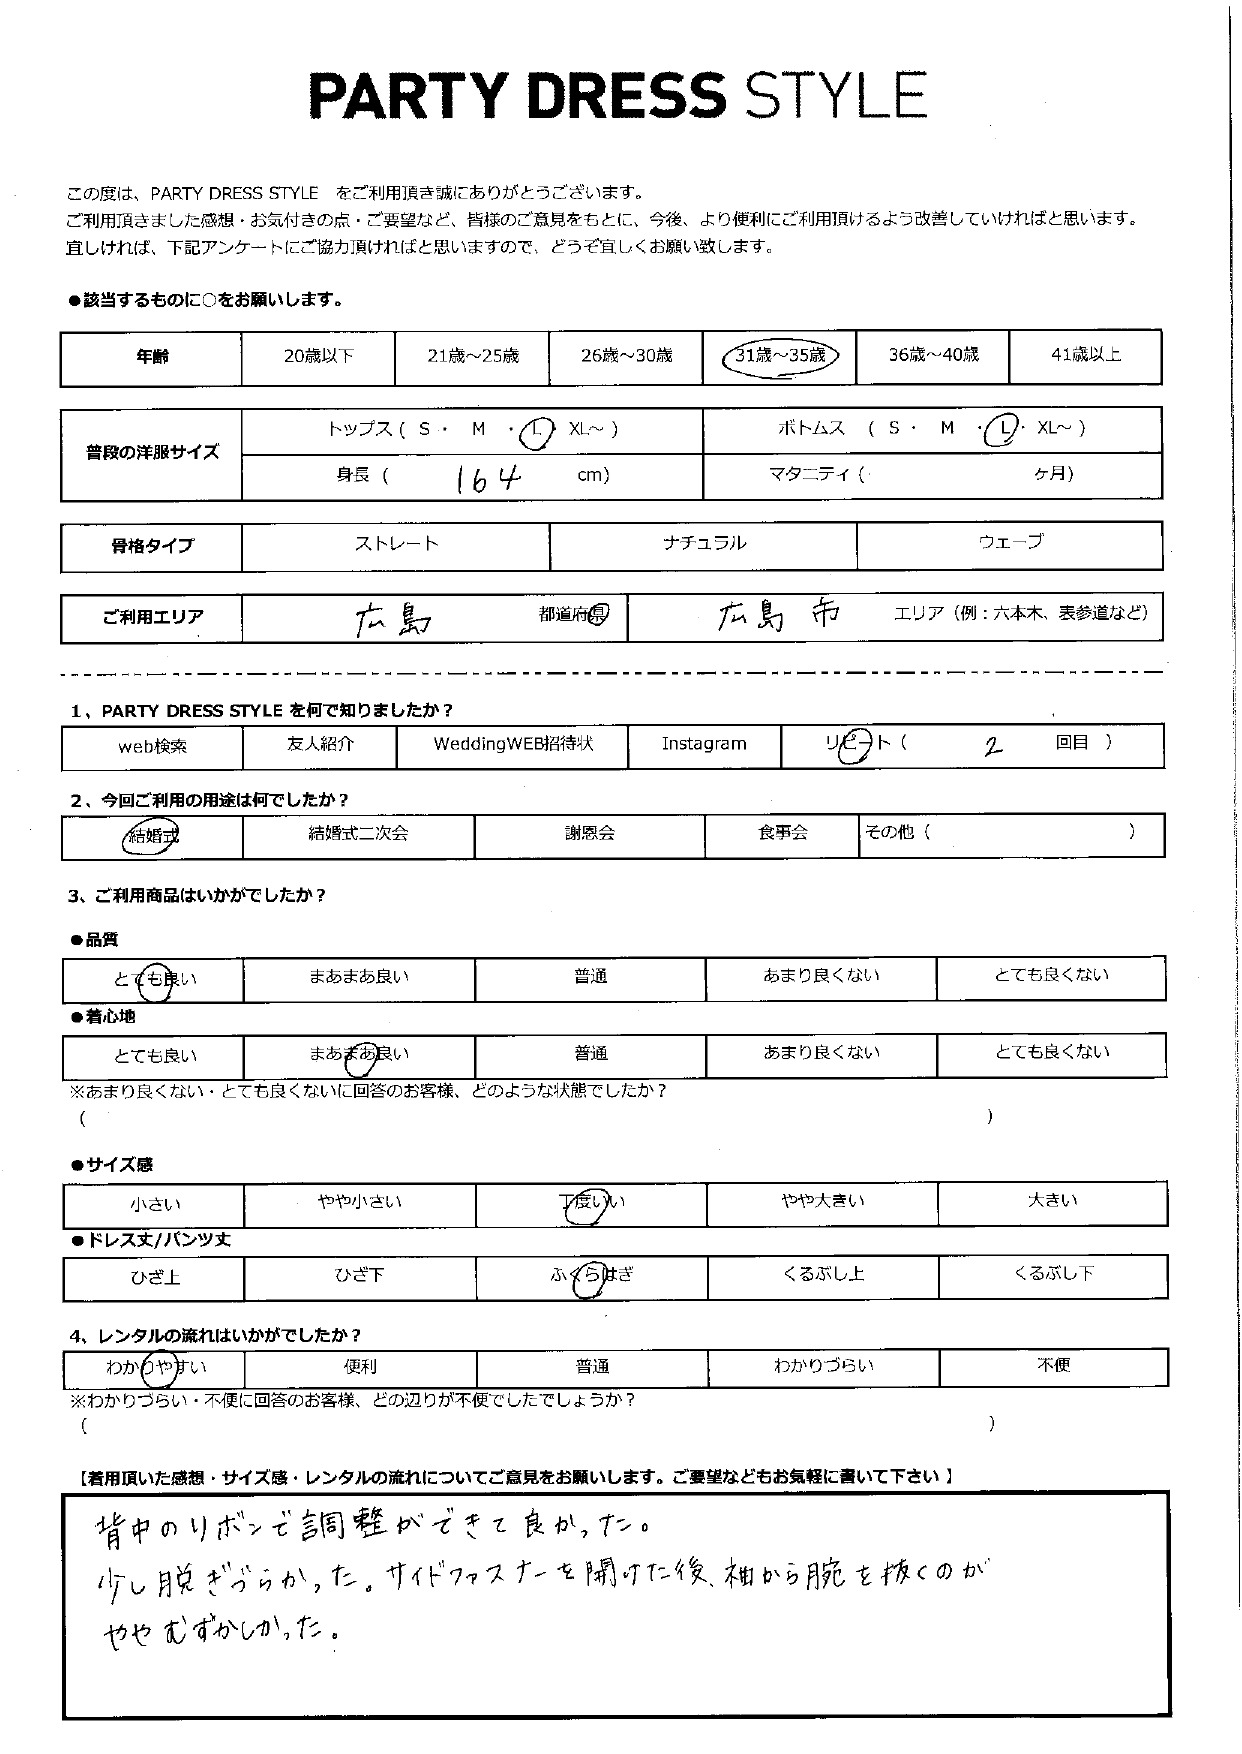 PARTY DRESS STYLE
この度は、PARTY DRESS STYLE をご利用頂き誠にありがとうございます。
ご利用頂きました感想・お気付きの点・ご要望など、皆様のご意見をもとに、今後、より便利にご利用頂けるよう改善していければと思います。
宜しければ、下記アンケートにご協力頂ければと思いますので、どうぞ宜しくお願い致します。
●該当するものに○をお願いします。
年齢 20歳以下 21歳～25歳 26歳～30歳 31歳～35歳 36歳～40歳 41歳以上
普段の洋服サイズ トップス ( S ・ M ・ L ・ XL～ ) ボトムス ( S ・ M ・ L ・ XL～ )
身長 ( 164 cm) マタニティ ( ヶ月)
骨格タイプ ストレート ナチュラル ウェーブ
ご利用エリア 広島 都道府県 広島市 エリア（例：六本木、表参道など）
1、PARTY DRESS STYLE を何で知りましたか？
web検索 友人紹介 WeddingWEB招待状 Instagram リピート ( 2 回目 )
2、今回ご利用の用途は何でしたか？
結婚式 結婚式二次会 謝恩会 食事会 その他 ( )
3、ご利用商品はいかがでしたか？
●品質
とても良い まあまあ良い 普通 あまり良くない とても良くない
●着心地
とても良い まあまあ良い 普通 あまり良くない とても良くない
※あまり良くない・とても良くないに回答のお客様、どのような状態でしたか？
( )
●サイズ感
小さい やや小さい 丁度いい やや大きい 大きい
●ドレス丈/パンツ丈
ひざ上 ひざ下 ふくらはぎ くるぶし上 くるぶし下
4、レンタルの流れはいかがでしたか？
わかりやすい 便利 普通 わかりづらい 不便
※わかりづらい・不便に回答のお客様、どの辺りが不便でしたでしょうか？
( )
【着用頂いた感想・サイズ感・レンタルの流れについてご意見をお願いします。ご要望などもお気軽に書いて下さい】
背中のリボンで調整ができて良かった。
少し脱ぎづらかった。サイドファスナーを開けた後、袖から腕を抜くのが
ややむずかしかった。